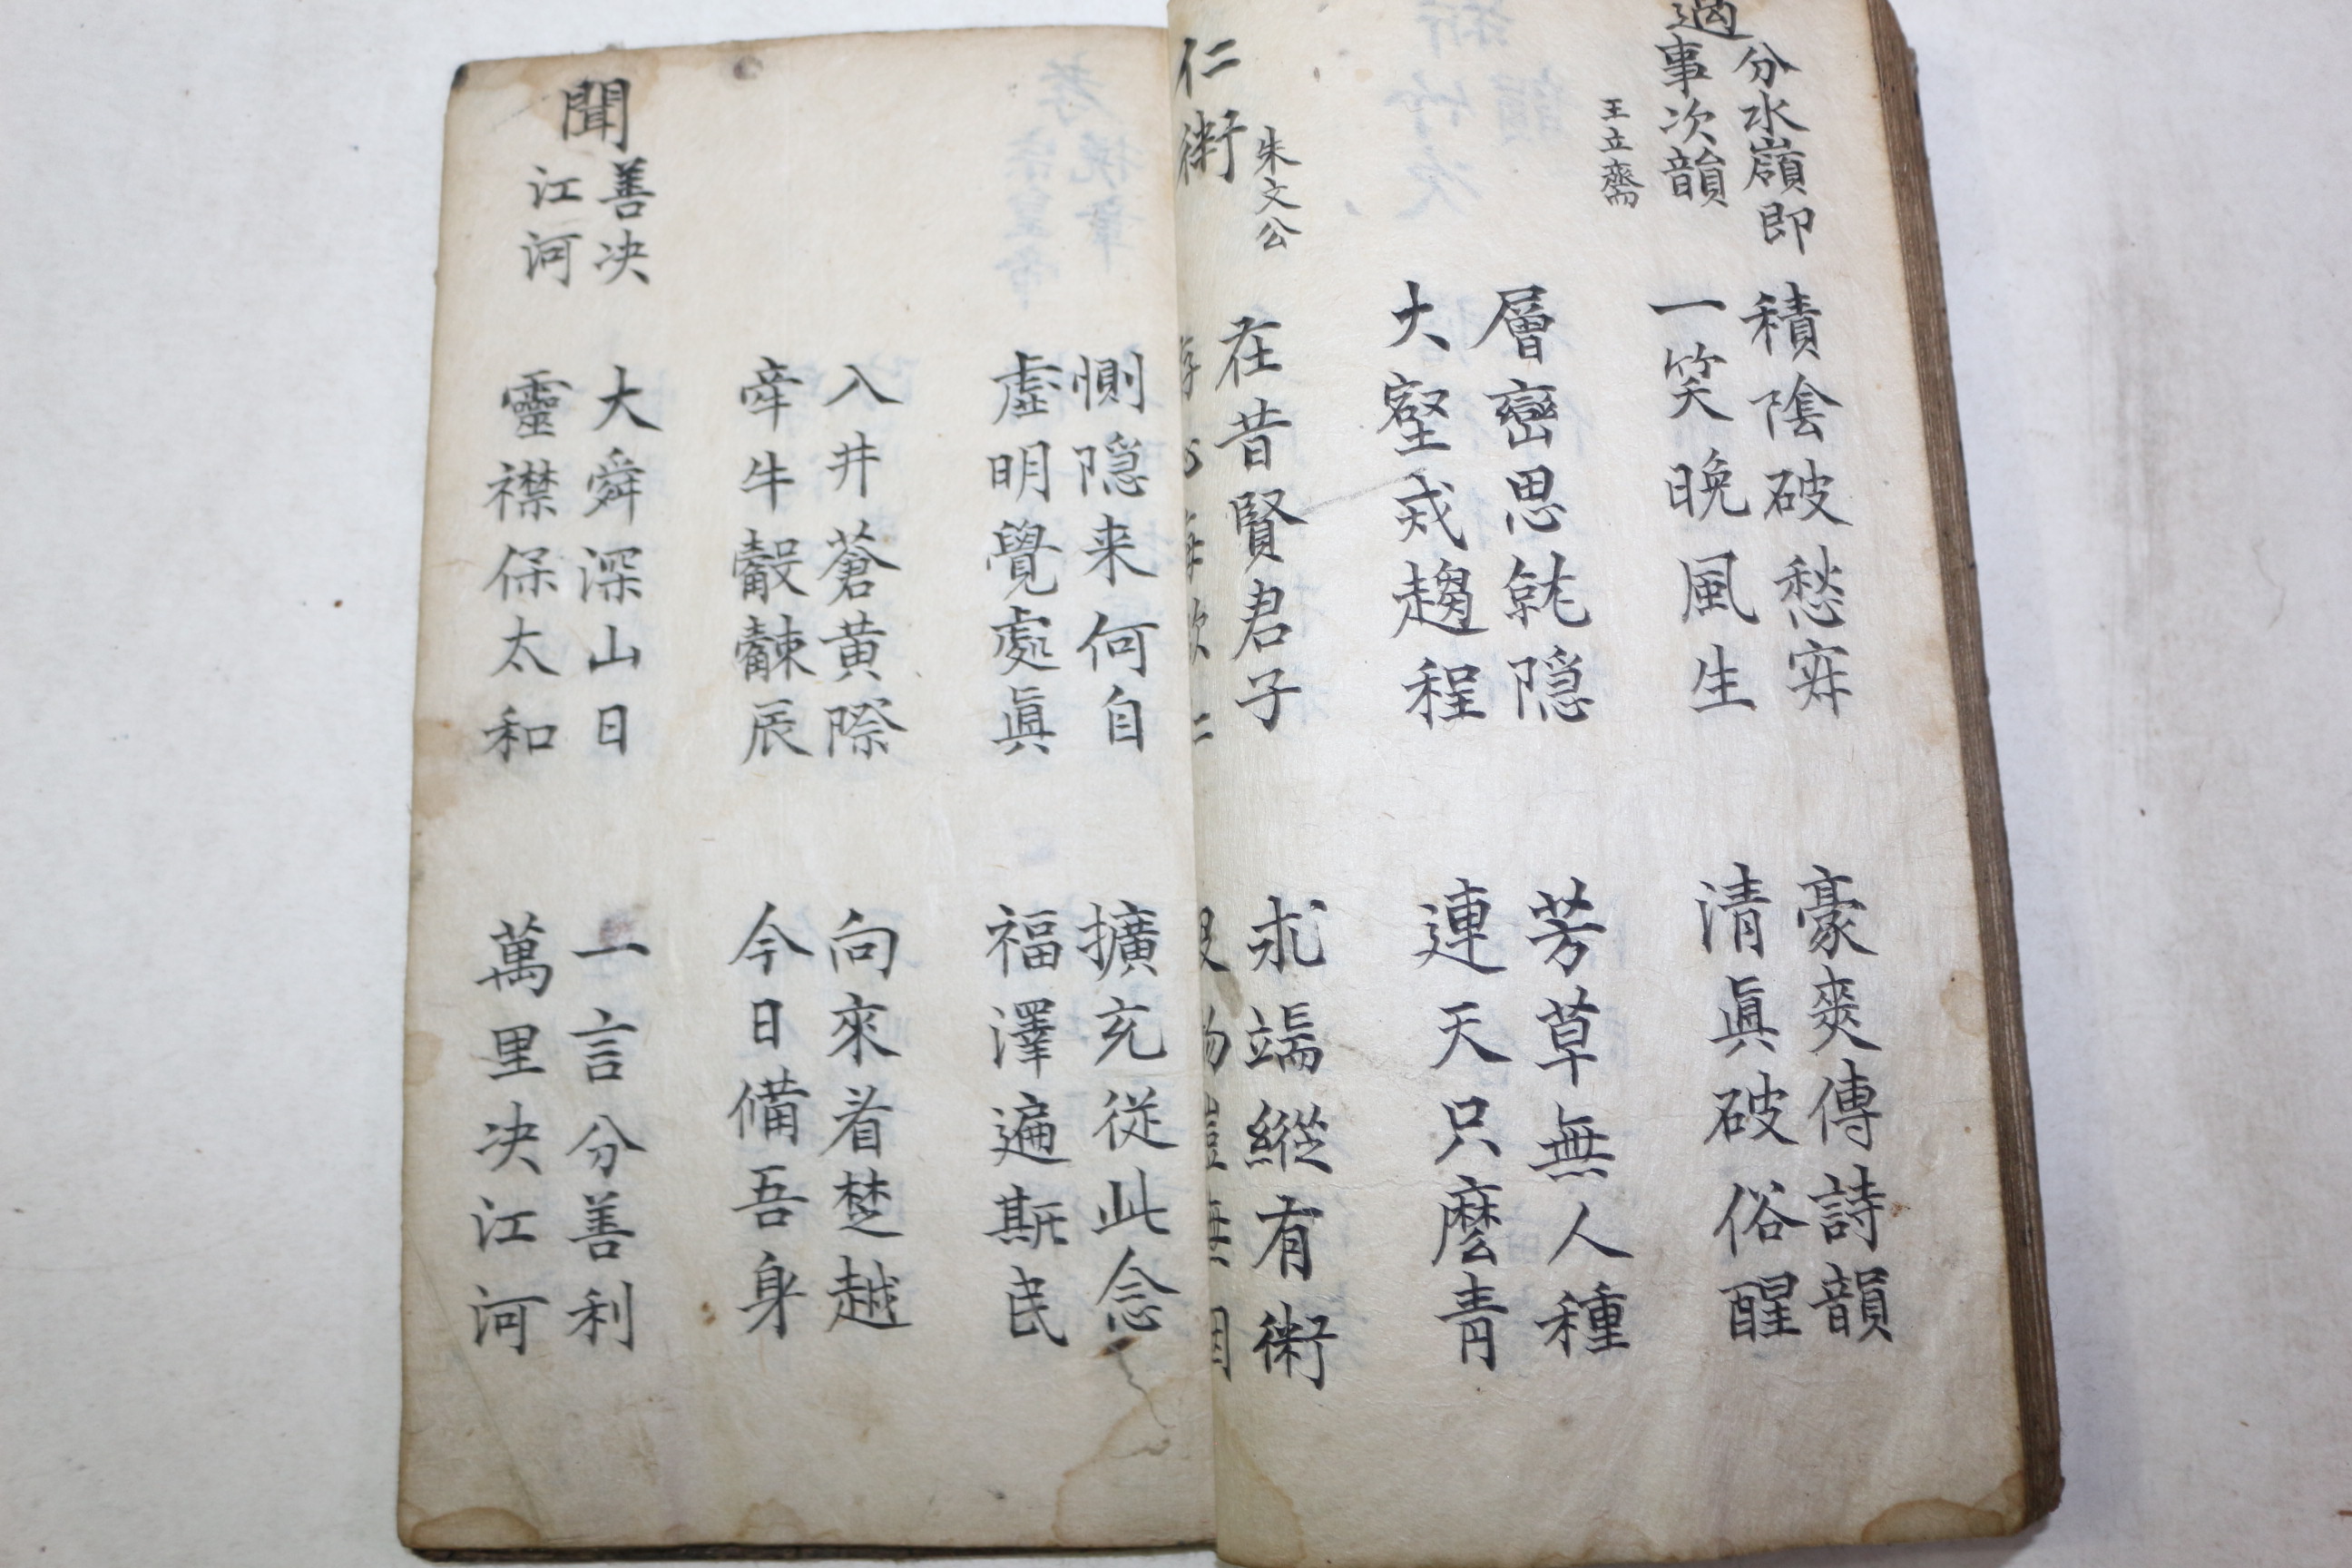 過分水嶺即
事次韻
王立齋
積陰破愁寂　豪爽傳詩韻
一笑晚風生　清眞破俗醒
層巒思就隠　芳草無人種
大壑戒趨程　連天只麽青
仁術　朱文公
在昔賢君子　求端縱有術
惻隠来何自　擴充従此念
虛明覺處眞　福澤遍斯民
入井蒼黄際　向來看楚越
牽牛觳觫辰　今日備吾身
聞善决
江河
大舜深山日　一言分善利
靈襟保太和　萬里决江河